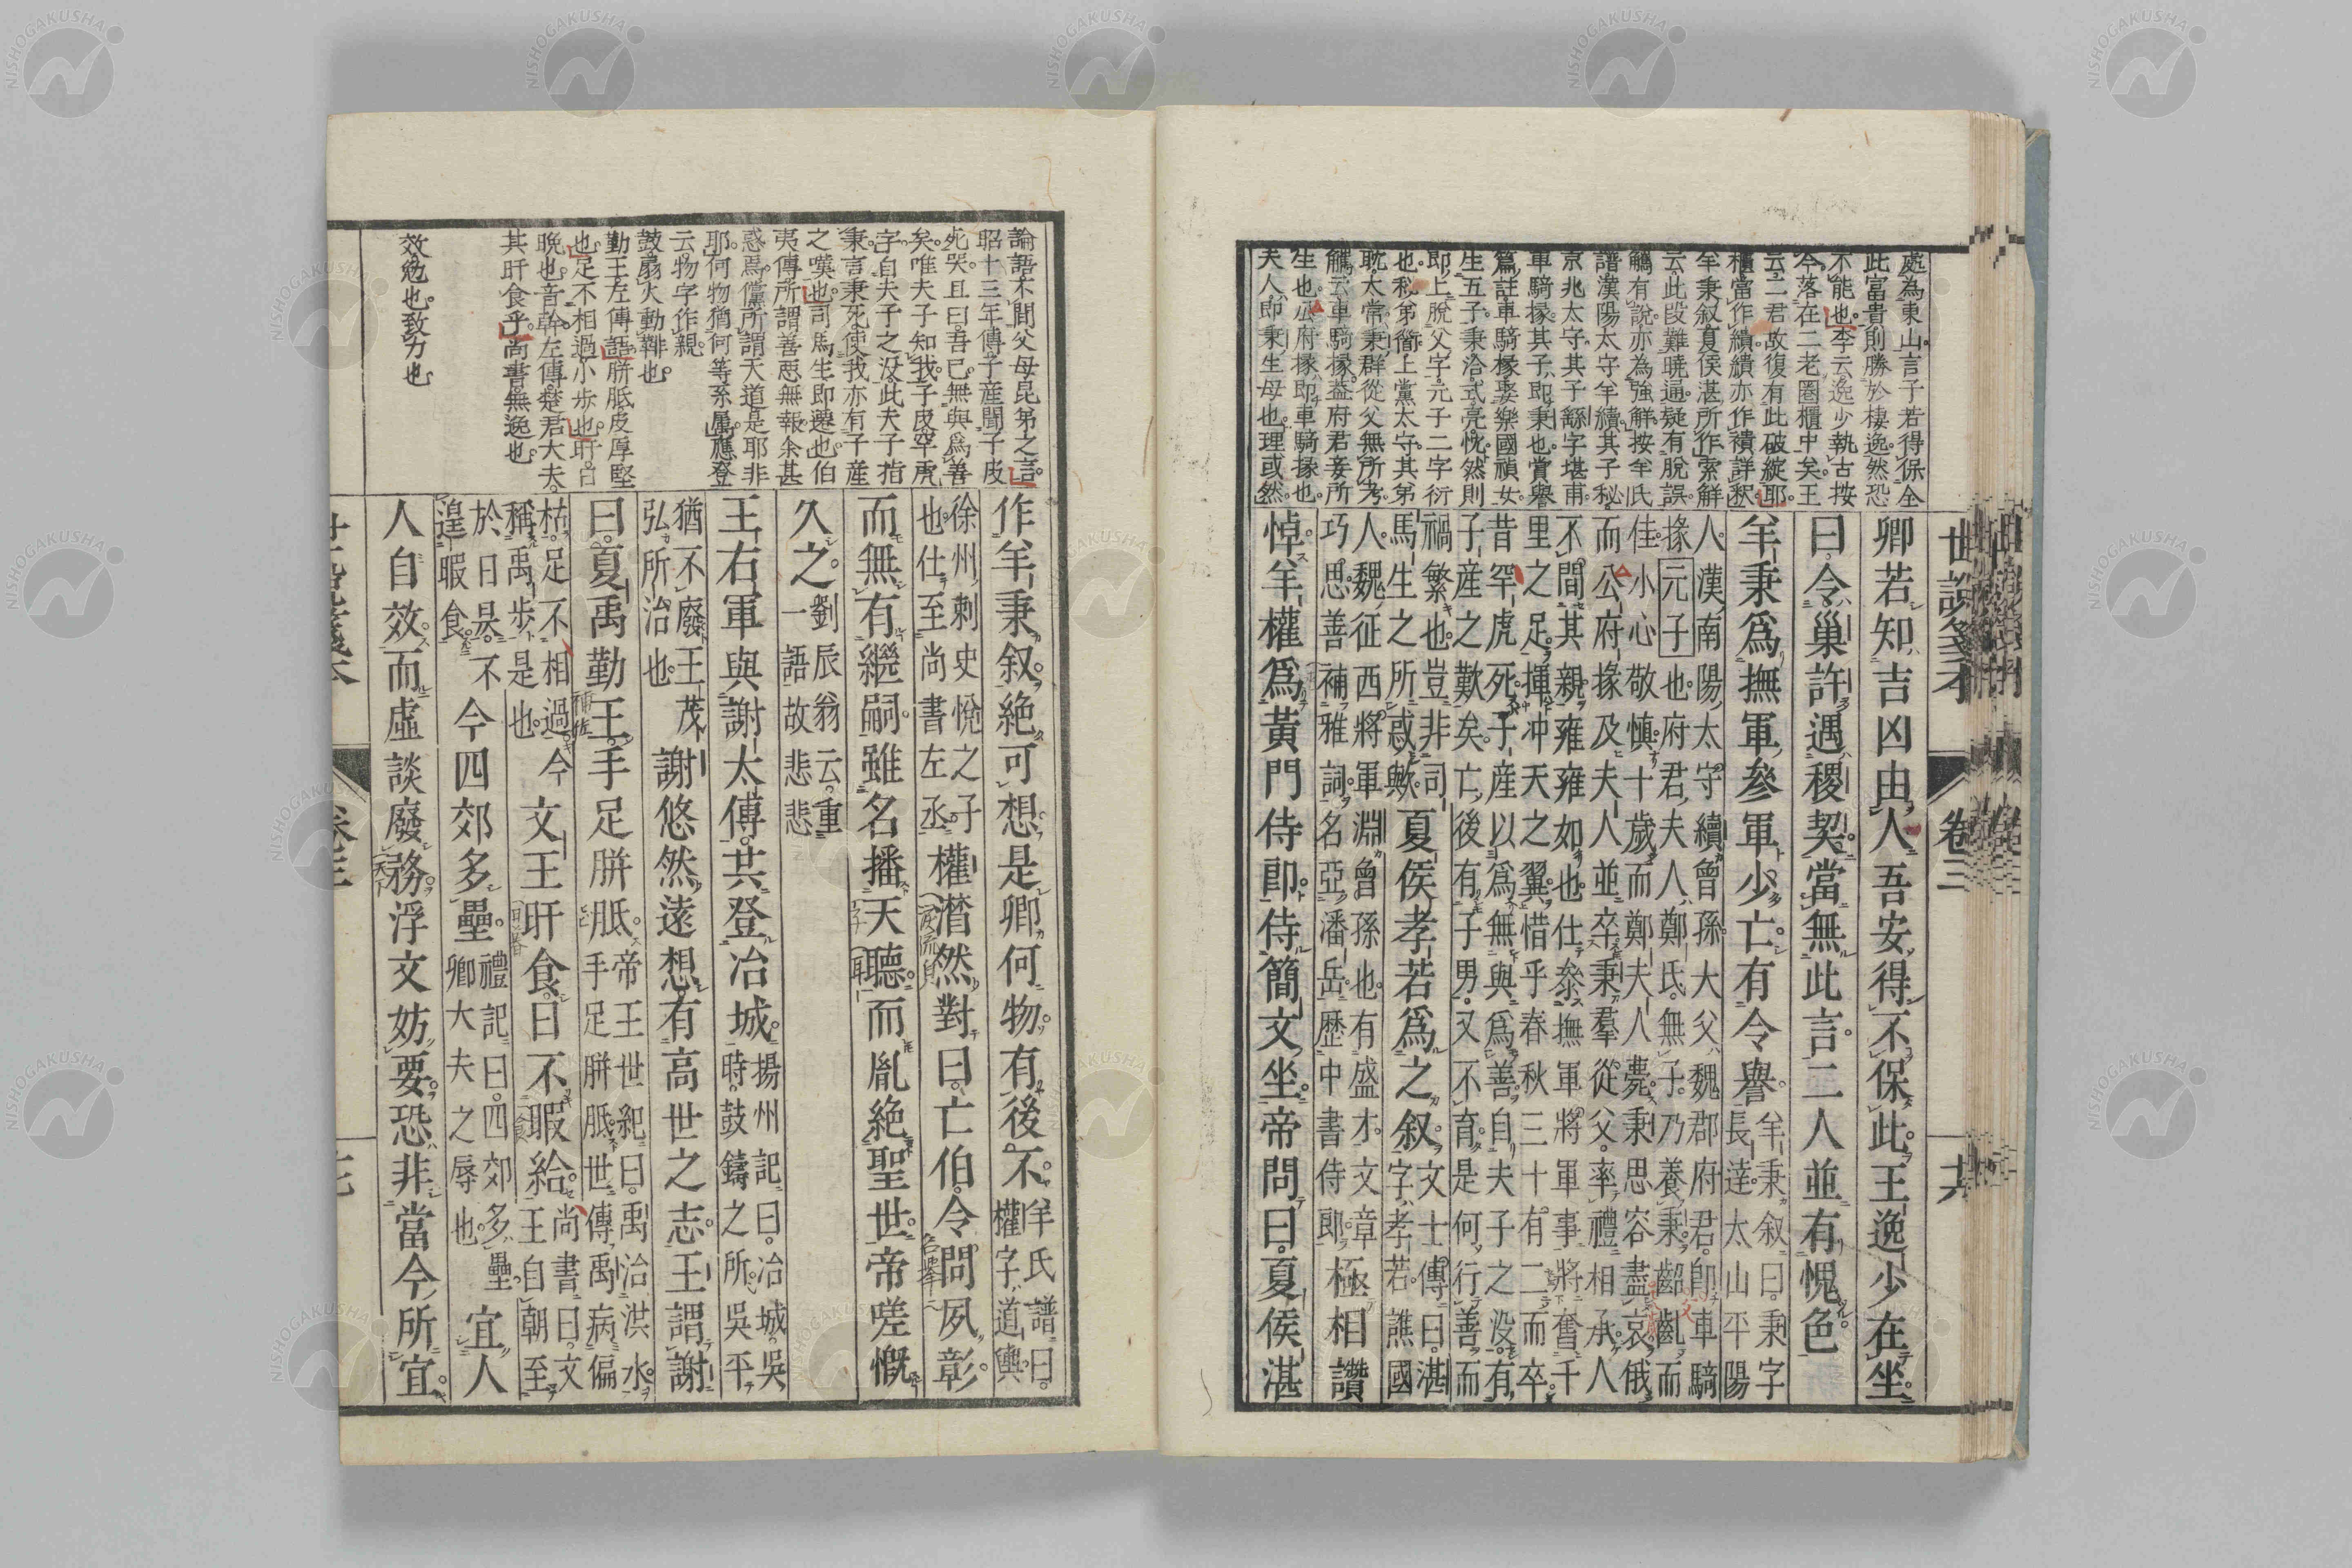 處為東山言子若得保全
此富貴則勝於棲逸然恐
不能也李云逸少執古按
今落在二老圈櫃中矣王
云二君故復有此破綻耶
櫃當作繢繢亦作襀詳秋
羊秉叙夏侯湛所作索解
云此段難曉通疑有脫誤
觿有說亦為強解按羊氏
譜漢陽太守羊續其子秘
京兆太守其子繇字堪甫
車騎掾其子即秉也賞譽
篇註車騎掾娶樂國禎女
生五子秉洽式亮悅然則
即上脫父字元子二字衍
也秘弟衜上黨太守其弟
耽太常秉群從父無所考
觿云車騎掾益府君妾所
生也公府掾即車騎掾也
夫人即秉生母也理或然
卿若知吉凶由人吾安得不保此王逸少在坐
曰令巢許遇稷契當無此言二人並有愧色
羊秉為撫軍參軍少亡有令譽
羊秉叙曰秉字
長達太山平陽
人漢南陽太守續曾孫大父魏郡府君即車騎
掾元子也府君夫人鄭氏無子乃養秉齠齔而
佳小心敬慎十歲而鄭夫人薨秉思容盡哀俄
而公府掾及夫人並卒秉羣從父率禮相承人
不間其親雍雍如也仕參撫軍將軍事將奮千
里之足揮冲天之翼惜乎春秋三十有二而卒
昔罕虎死子產以為無與為善自夫子之没有
子產之歎矣亡後有子男又不育是何行善而
禍繁也豈非司
馬生之所惑歟
夏侯孝若為之叙
文士傳曰湛
字孝若譙國
人魏征西將軍淵曾孫也有盛才文章
巧思善補雅詞名亞潘岳歷中書侍郎
極相讚
悼羊權為黃門侍郎侍簡文坐帝問曰夏侯湛
世說箋本
卷三
十六
論語不間父母昆弟之言
昭十三年傳子產聞子皮
死哭且曰吾已無與為善
矣唯夫子知我子皮罕虎
字自夫子之没此夫子指
秉言秉死使我亦有子產
之嘆也司馬生即遷也伯
夷傳所謂善惡無報余甚
惑焉儻所謂天道是耶非
耶何物猶何等系屬應登
云物字作親
鼓扇火動鞴也
勤王左傳語胼胝皮厚堅
也足不相過小步也旰古
晚也音幹左傳楚君大夫
其旰食乎尚書無逸也
效勉也致力也
作羊秉叙絶可想是卿何物有後不
羊氏譜曰
權字道輿
徐州刺史悅之子
也仕至尚書左丞
權潸然對曰亡伯令問夙彰
而無有繼嗣雖名播天聽而胤絶聖世帝嗟慨
久之
劉辰翁云重
一語故悲悲
王右軍與謝太傅共登冶城
揚州記曰冶城吳
時鼓鑄之所吳平
猶不廢王茂
弘所治也
謝悠然遠想有高世之志王謂謝
曰夏禹勤王手足胼胝
帝王世紀曰禹治洪水
手足胼胝世傳禹病偏
枯足不相過今
稱禹步是也
文王旰食日不暇給
尚書曰文
王自朝至
於日昃不
遑暇食
今四郊多壘
禮記曰四郊多壘
卿大夫之辱也
宜人
人自效而虛談廢務浮文妨要恐非當今所宜
卷三